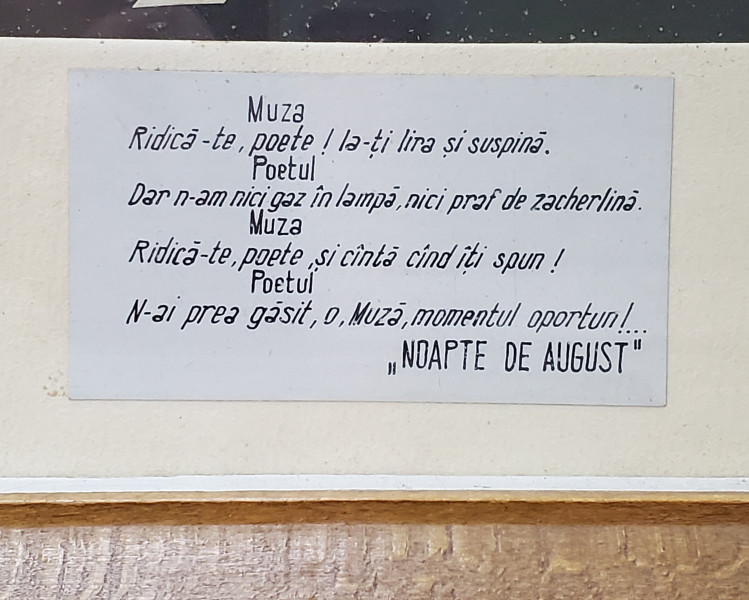 Muza
Ridică-te, poete! Ia-ți lira și suspină.
Poetul
Dar n-am nici gaz în lampă, nici praf de zacherlină.
Muza
Ridică-te, poete, și cîntă cînd îți spun!
Poetul
N-ai prea găsit, o, Muză, momentul oportun!...
„NOAPTE DE AUGUST"